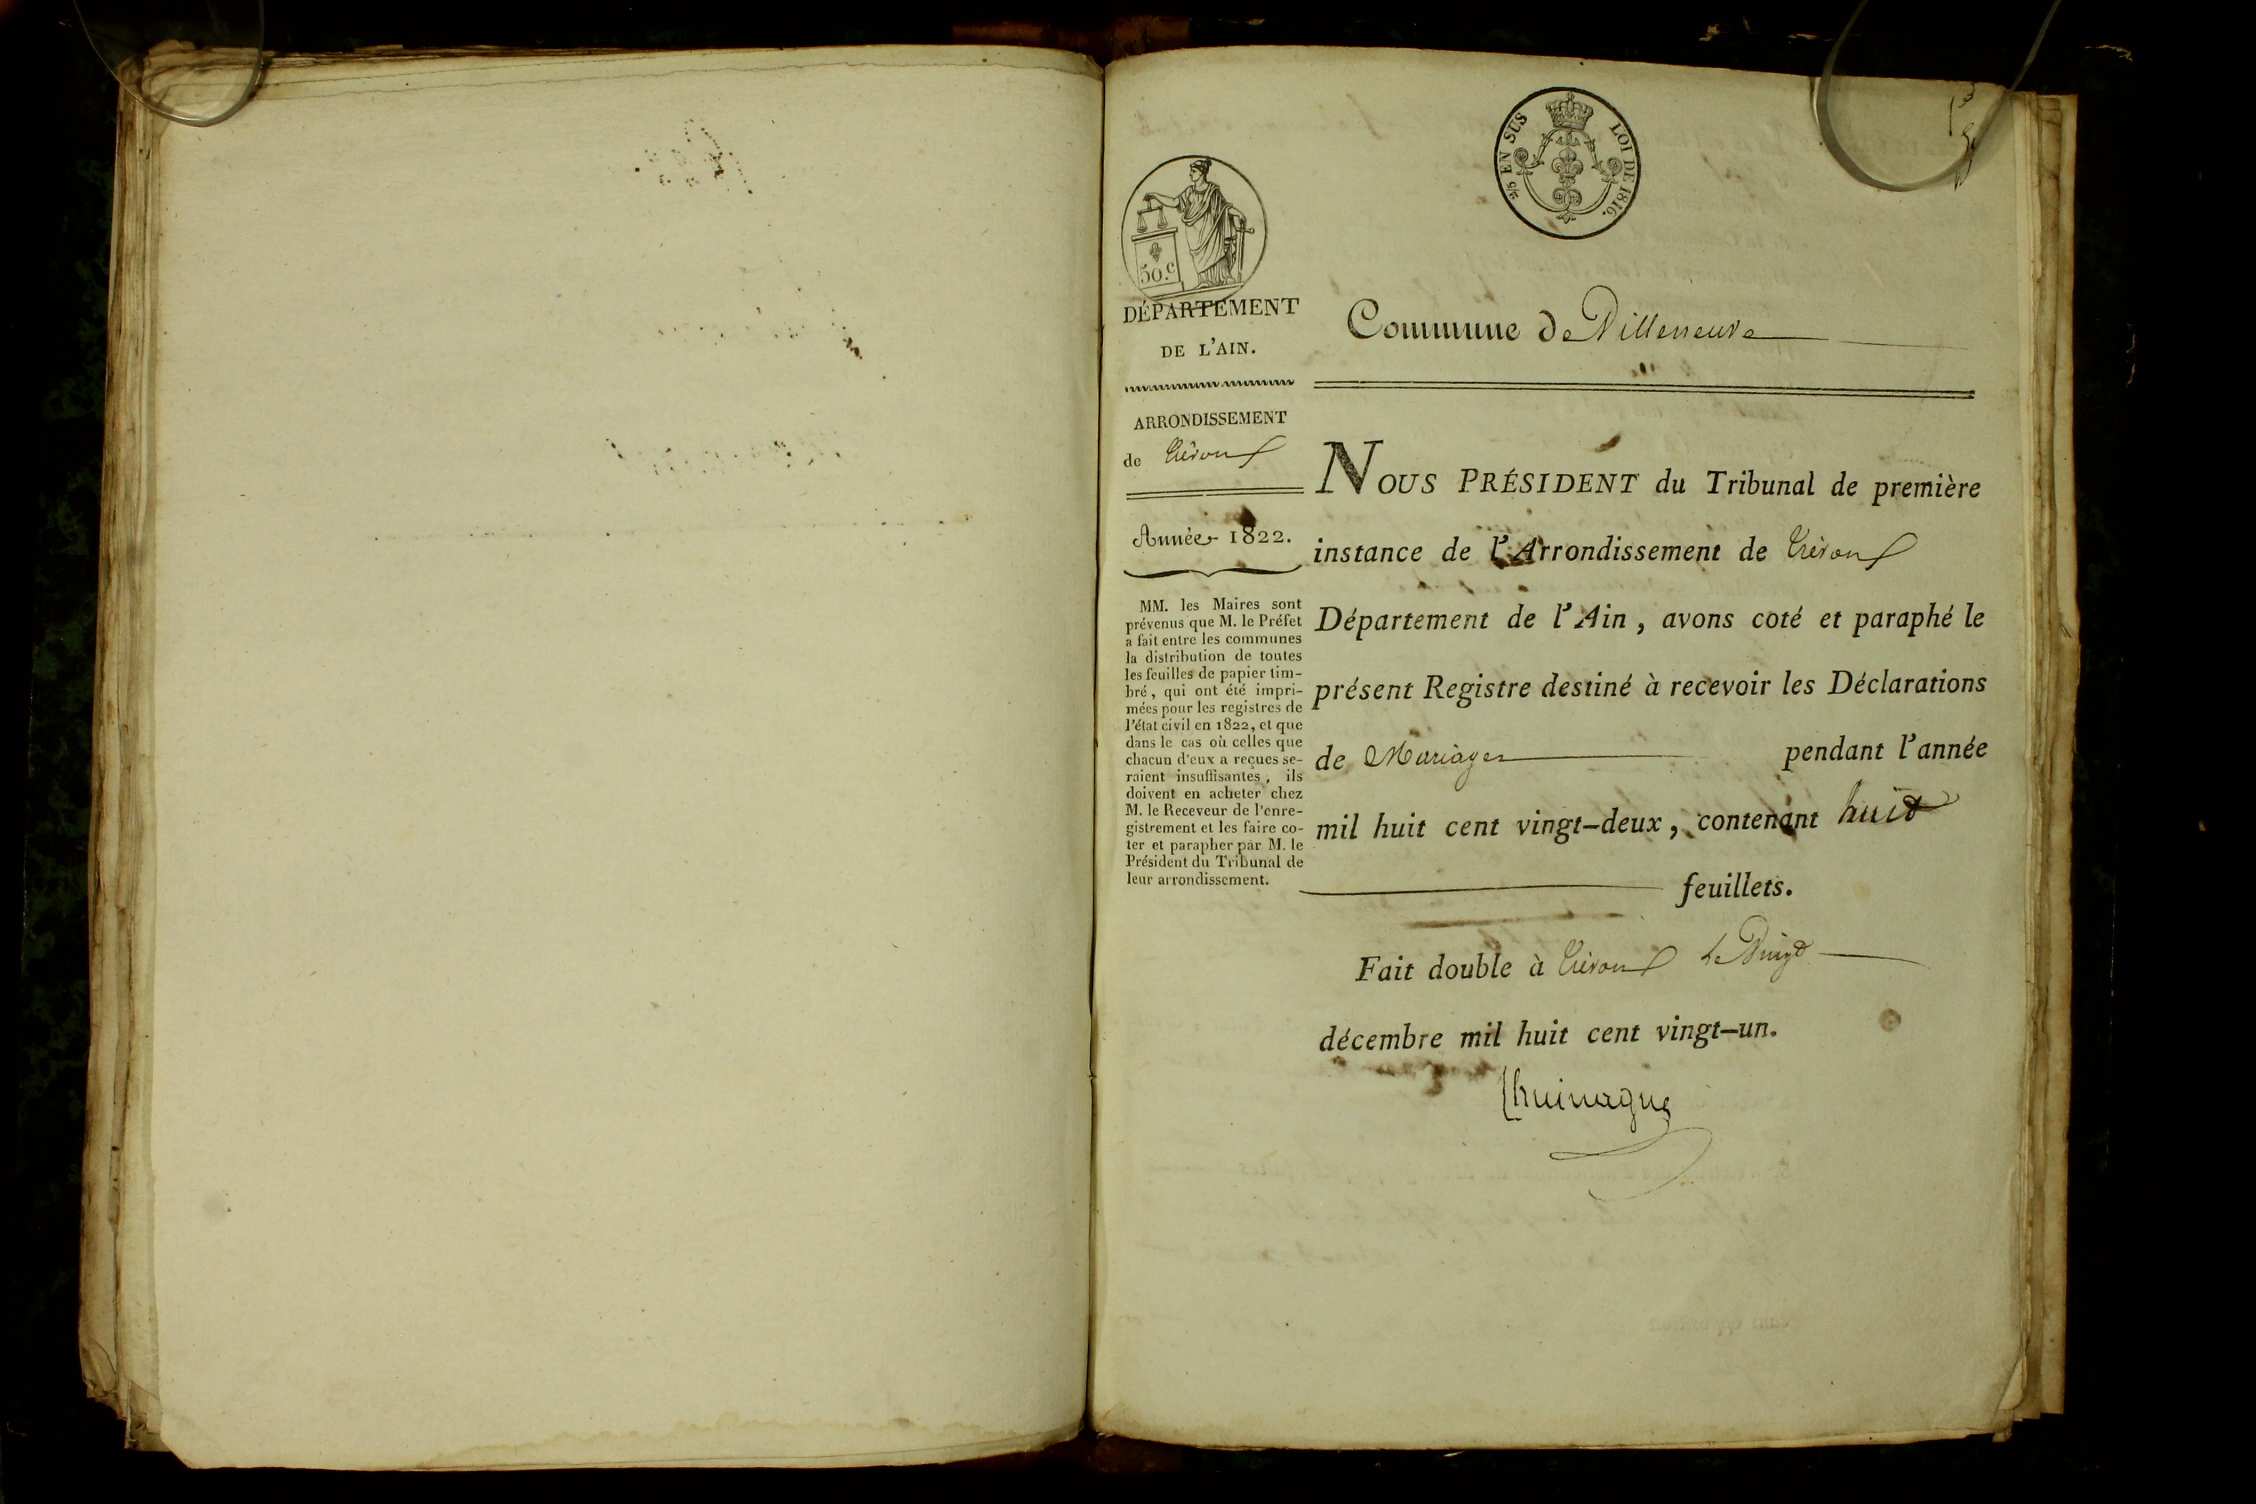 2/5 EN SUS LOI DE 1816.
50.c
DÉPARTEMENT
DE L'AIN.
ARRONDISSEMENT
de Trévoux
Année 1822.
MM. les Maires sont
prévenus que M. le Préfet
a fait entre les communes
la distribution de toutes
les feuilles de papier tim-
bré, qui ont été impri-
mées pour les registres de
l'état civil en 1822, et que
dans le cas où celles que
chacun d'eux a reçues se-
raient insuffisantes, ils
doivent en acheter chez
M. le Receveur de l'enre-
gistrement et les faire co-
ter et parapher par M. le
Président du Tribunal de
leur arrondissement.
Commune de Villeneuve
NOUS PRÉSIDENT du Tribunal de première
instance de l'Arrondissement de Trévoux
Département de l'Ain, avons coté et paraphé le
présent Registre destiné à recevoir les Déclarations
de Mariages pendant l'année
mil huit cent vingt-deux, contenant huit
feuillets.
Fait double à Trévoux le Vingt
décembre mil huit cent vingt-un.